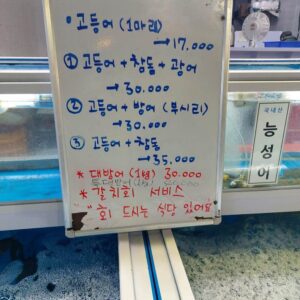 · 고등어 (1마리)
→ 17.000
① 고등어 + 참돔 + 광어
→ 30.000
② 고등어 + 방어 (부시리)
→ 30.000
③ 고등어 + 참돔
→ 35.000
* 대방어 (1팩) 30.000
* 갈치회 서비스
"회 드시는 식당 있어요
국내산
능성어